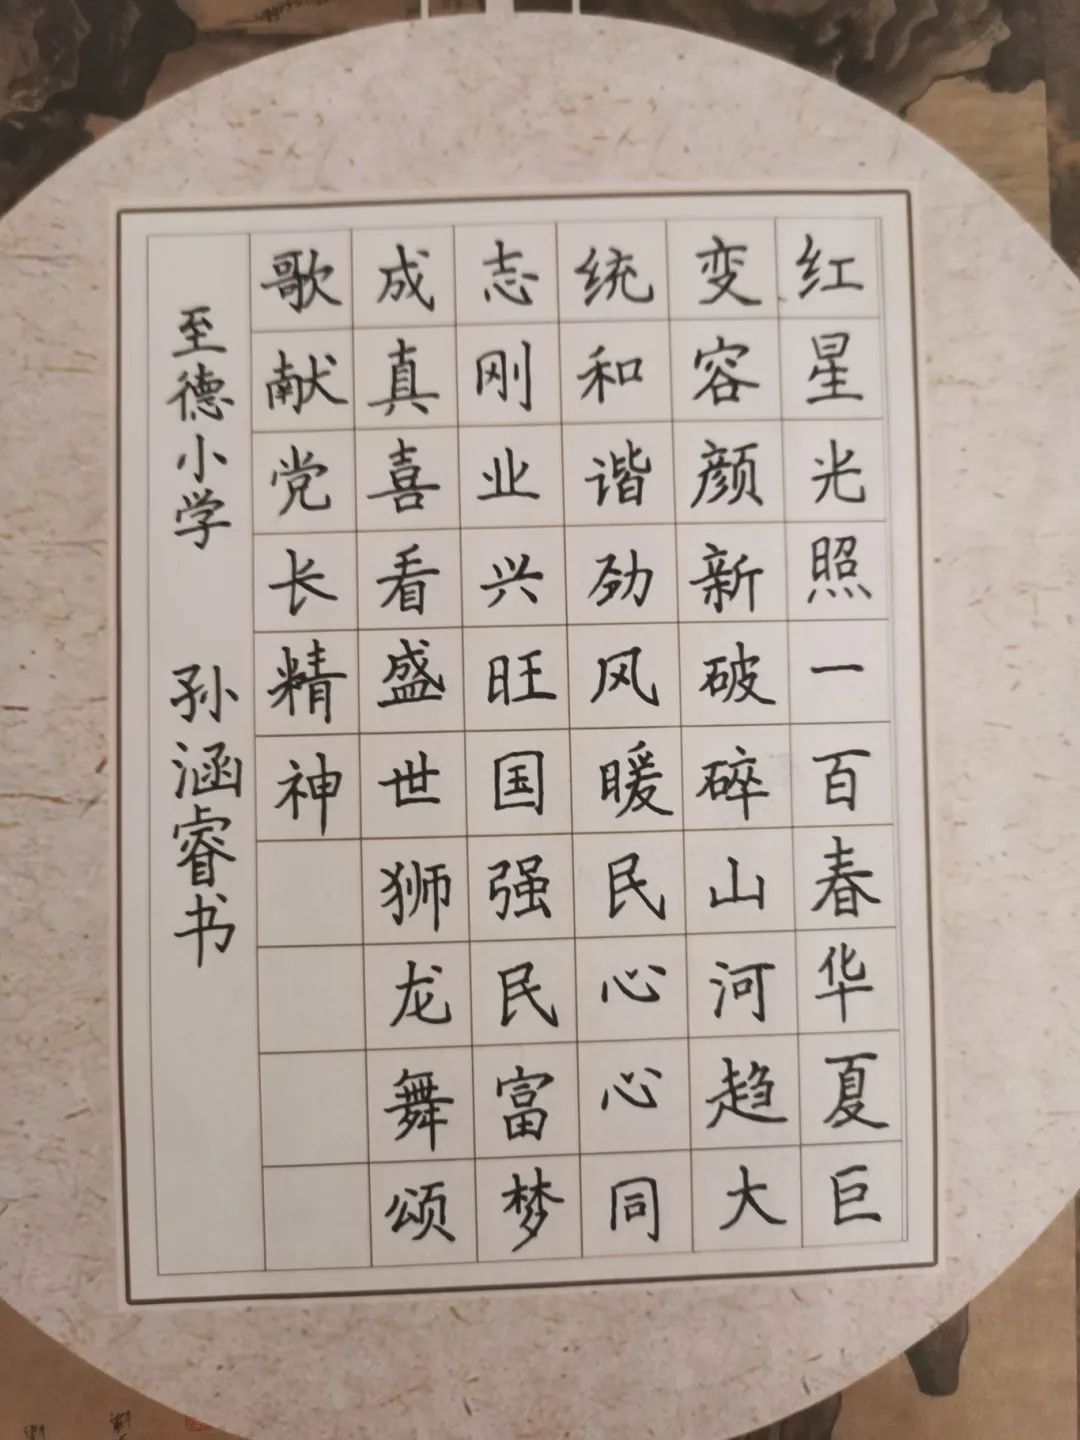 红星光照一百春华夏巨
变容颜新破碎山河趋大
统和谐劲风暖民心心同
志刚业兴旺国强民富梦
成真喜看盛世狮龙舞颂
歌献党长精神
至德小学 孙涵睿书